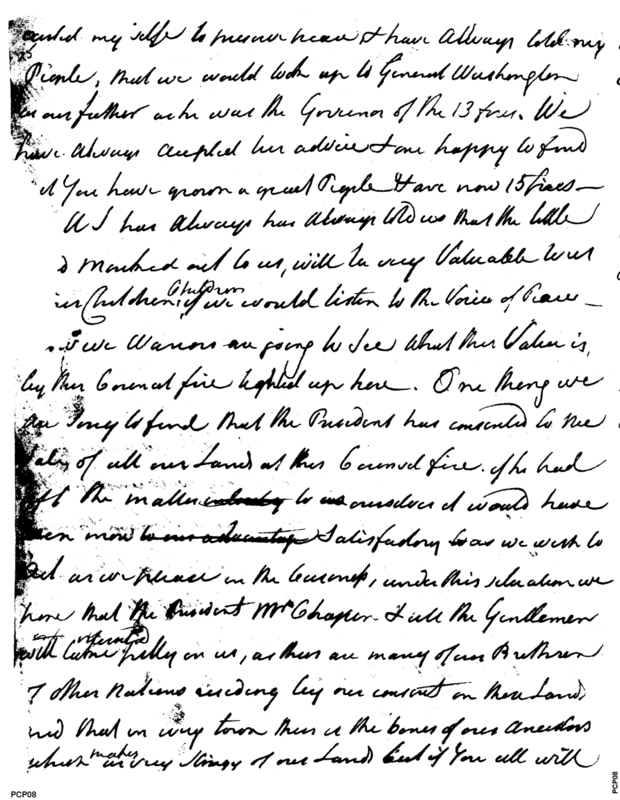 my self to preserve peace & have always told my
People, that we would look up to General Washington
as our father as he was the Governor of the 13 fires. We
have always accepted his advice & are happy to find
You have grown a great People & have now 15 fires—
As I has always has always told us that the little
marked out to us, will be very Valuable to us
Children, Children if we would listen to the Voice of Peace—
we Warriors are going to see what this Value is,
by this Council fire lighted up here. One thing we
are sorry to find that the President has consented to the
sale of all our Land at this Council fire. if he had
left the matter entirely to us ourselves it would have
been more to our advantage Satisfactory to as we wish to
act as we please on the business, under this situation we
hope that the President Mr Chapin & all the Gentlemen
will take pitty on us, as there are many of our Brethren
of other Nations residing by our consent on these Lands
and that in every town there is the bones of our ancestors
which makes us very stingy of our Lands but if You all will
PCP08
PCP08